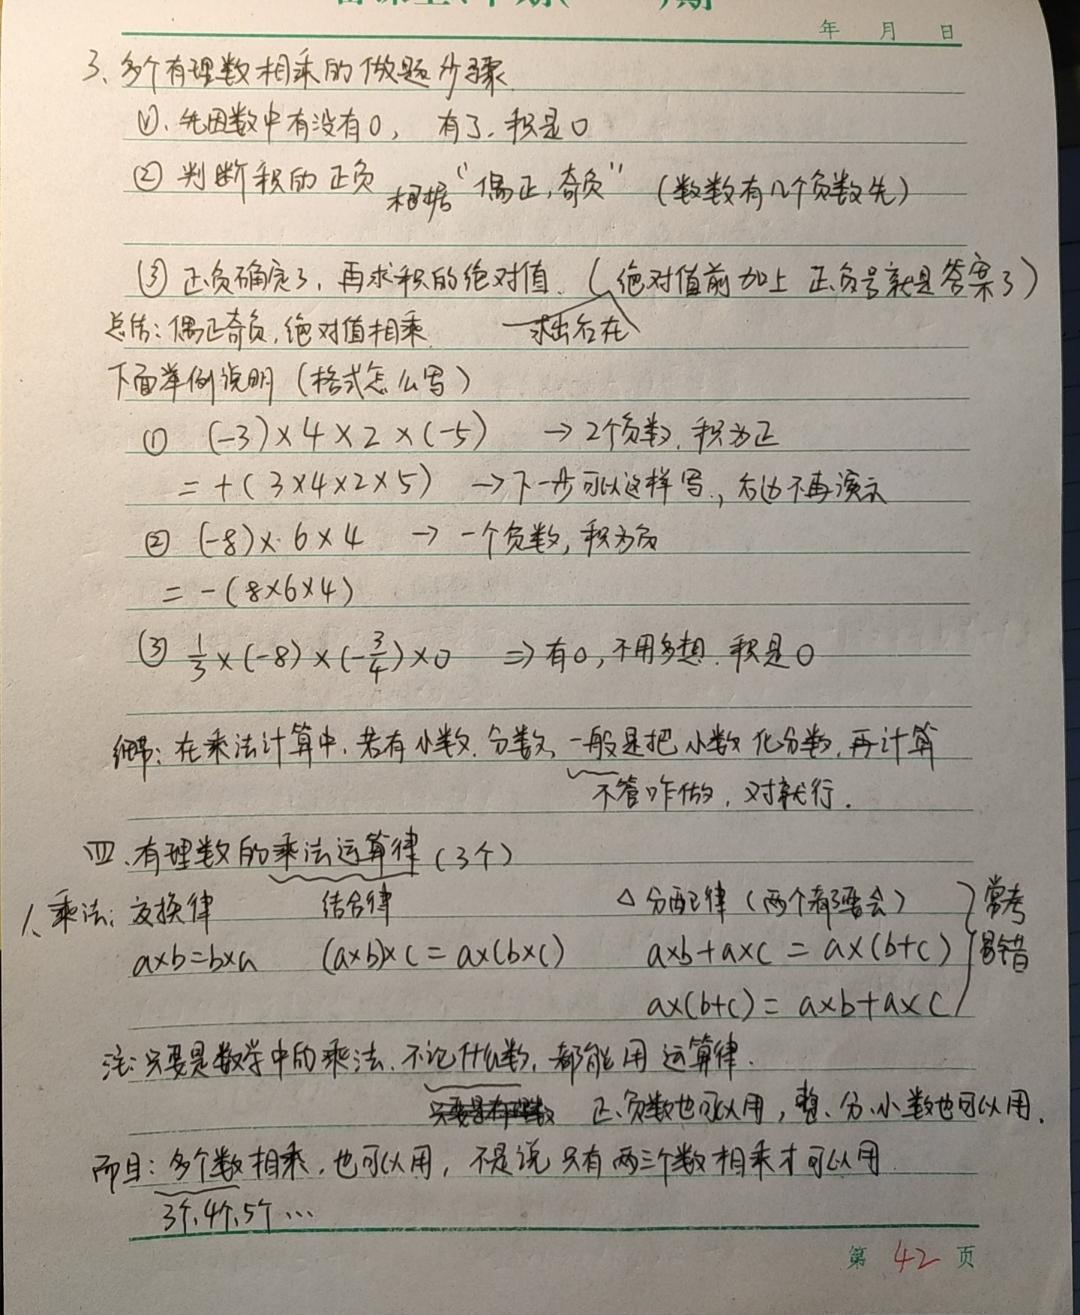 年 月 日
3、多个有理数相乘的做题步骤
①、先因数中有没有0， 有了、积是0
② 判断积的正负 根据“偶正，奇负”（数数有几个负数先）
③ 正负确定了，再求积的绝对值．（绝对值前加上 正负号就是答案了）
总结：偶正奇负，绝对值相乘．
下面举例说明（格式怎么写）
① (-3)×4×2×(-5) → 2个负数，积为正
= +(3×4×2×5) → 下一步可以这样写．，右边不再演示
② (-8)×6×4 → 一个负数，积为负
= -(8×6×4)
③ 1/3×(-8)×(-3/4)×0 ⇒ 有0，不用多想．积是0
细节：在乘法计算中．若有小数．分数、一般是把小数化分数，再计算
不管咋做，对就行．
四、有理数的乘法运算律（3个）
1、乘法：交换律 结合律 △分配律（两个都要会） 常考
a×b=b×a (a×b)×c=a×(b×c) a×b+a×c=a×(b+c) 易错
a×(b+c)=a×b+a×c
注：只要是数学中的乘法．不论什么数，都能用 运算律．
正、负数也可以用，整、分、小数也可以用．
而且：多个数相乘．也可以用，不是说 只有两三个数相乘才可以用
3个、4个、5个…
第 42 页